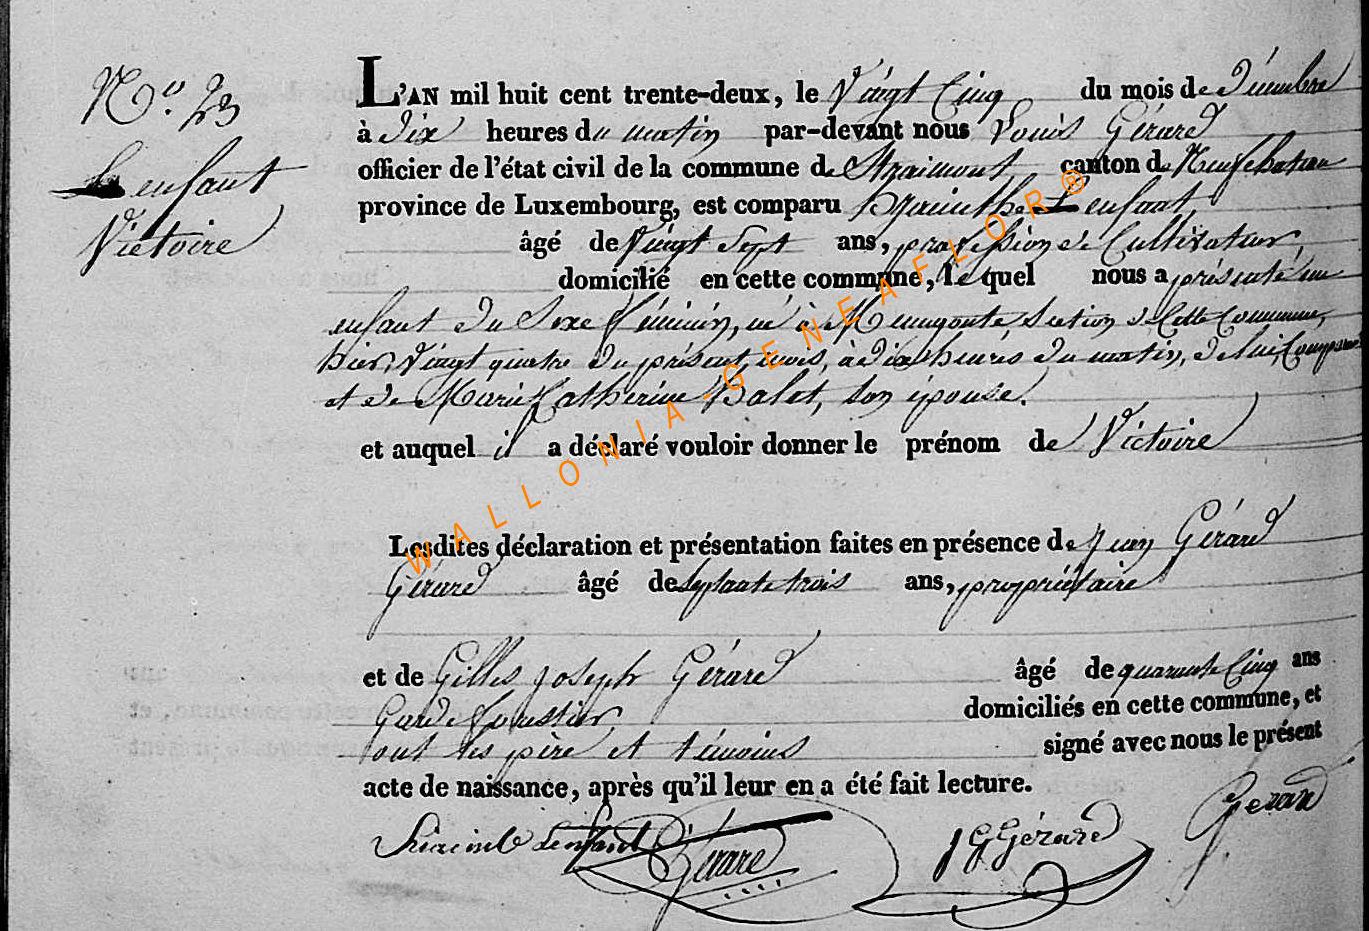 N° 23
Lenfant
Victoire
L'AN mil huit cent trente-deux, le Vingt Cinq du mois de Décembre
à dix heures du matin par-devant nous Louis Gérard
officier de l'état civil de la commune de Straimont canton de Neufchateau
province de Luxembourg, est comparu Hyacinthe Lenfant
âgé de Vingt Sept ans, profession de Cultivateur,
domicilié en cette commune, le quel nous a présenté un
enfant du Sexe féminin, né à Menugoutte Section de Cette Commune,
hier, Vingt quatre du présent mois, à dix heures du matin, de lui, Comparant
et de Marie Catherine Balot, son épouse.
et auquel il a déclaré vouloir donner le prénom de Victoire
Lesdites déclaration et présentation faites en présence de Jean Gérard
Gérard âgé de septante trois ans, propriétaire
et de Gilles Joseph Gérard âgé de quarante Cinq ans
Garde forestier domiciliés en cette commune, et
ont les père et témoins signé avec nous le présent
acte de naissance, après qu'il leur en a été fait lecture.
Lenfant Gérard J G Gérard Gerard
WALLONIA-GENEAFLOR®